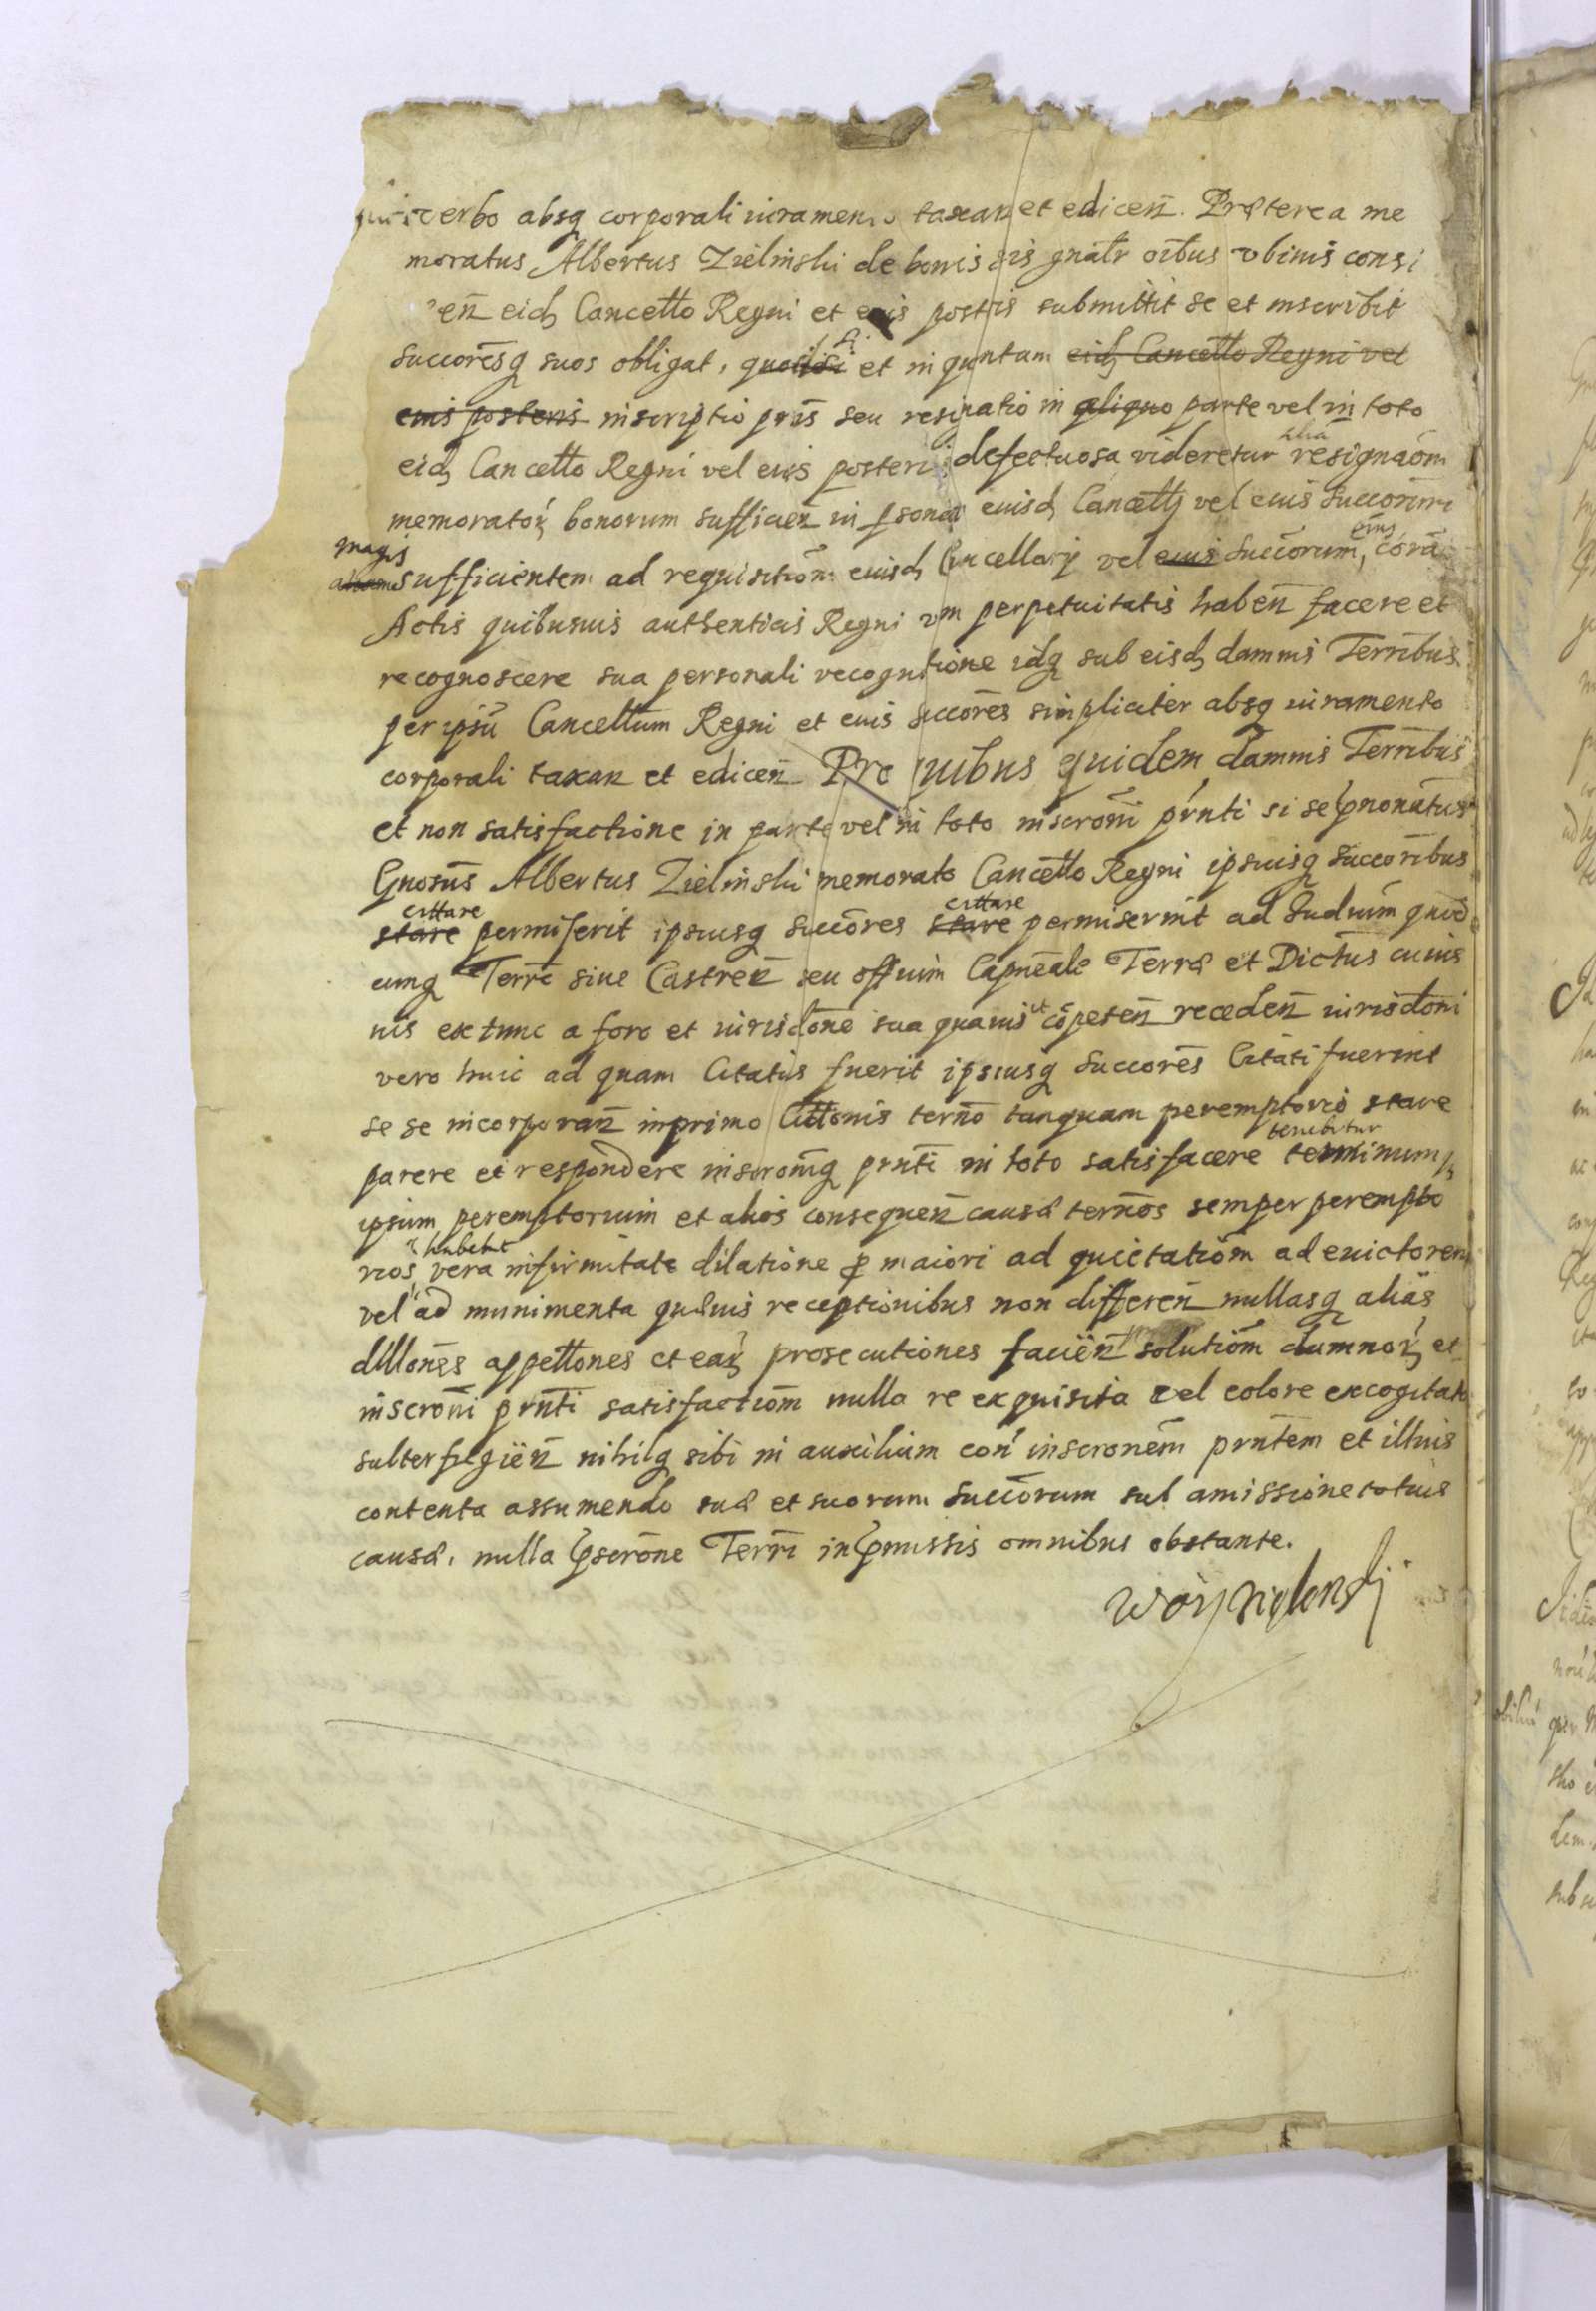 verbo absq corporali iuramento taxan et edicen. Præterea me
moratus Albertus Zielinski de bonis suis gnalr oibus vbiuis consi
ten eid Cancello Regni et eius postis submittit se et inscribit
succoresq suos obligat, quod si si et in quntum eid Cancello Regni vel
eius posteris inscriptio prns seu resignatio in aliquo parte vel in toto
eid Cancello Regni vel eius posteris defectuosa videretur alia resignaom
memorator bonorum sufficien in psonam eiusd Cancellj vel eius succorum
magis sufficientem ad requisitiom eiusd Cancellarij vel eius succorum, eius corã
Actis quibusuis authenticis Regni vm perpetuitatis haben facere et
recognoscere sua personali recognitione idq sub eisd damnis Terribus
per ipsũ Cancellum Regni et eius succores simpliciter absq iuramento
corporali taxan et edicen Pro quibus quidem damnis Terribus
et non satisfactione in parte vel in toto inscroni prnti si se pnonatus
Gnosus Albertus Zielinski memorato Cancello Regni ipsuisq succoribus
stare cittare permiserit ipsiusq succores stare cittare permiserint ad Iudium quod
cunq Terre siue Castren seu offuim Capneale Terræ et Dictus cuius
uis ex tunc a foro et iurisdone sua quauis ut cõpeten receden iurisdoni
vero huic ad quam Citatus fuerit ipsiusq succores Citati fuerint
se se incorporan in primo Cittonis terno tanquam peremptorio stare
parere et respondere inscroniq prnti in toto satisfacere tenebitur terminum
ipsum peremptorium et alios consequen causæ ternos semper perempto
rios habebit vera infirmitate dilatione p maiori ad quietatiom ad euictorem
vel ad munimenta quæuis receptionibus non differen nullasq alias
dillones appellones et ear prosecutiones facien solutiom damnor et
inscroni prnti satisfactiom nulla re exquisita vel colore excogitato
subterfugien nihilq sibi in auxilium con inscronem prntem et illius
contenta assumendo suæ et suorum succorum sub amissione totius
causæ, nulla pscrone Terri in pmissis omnibus obstante.